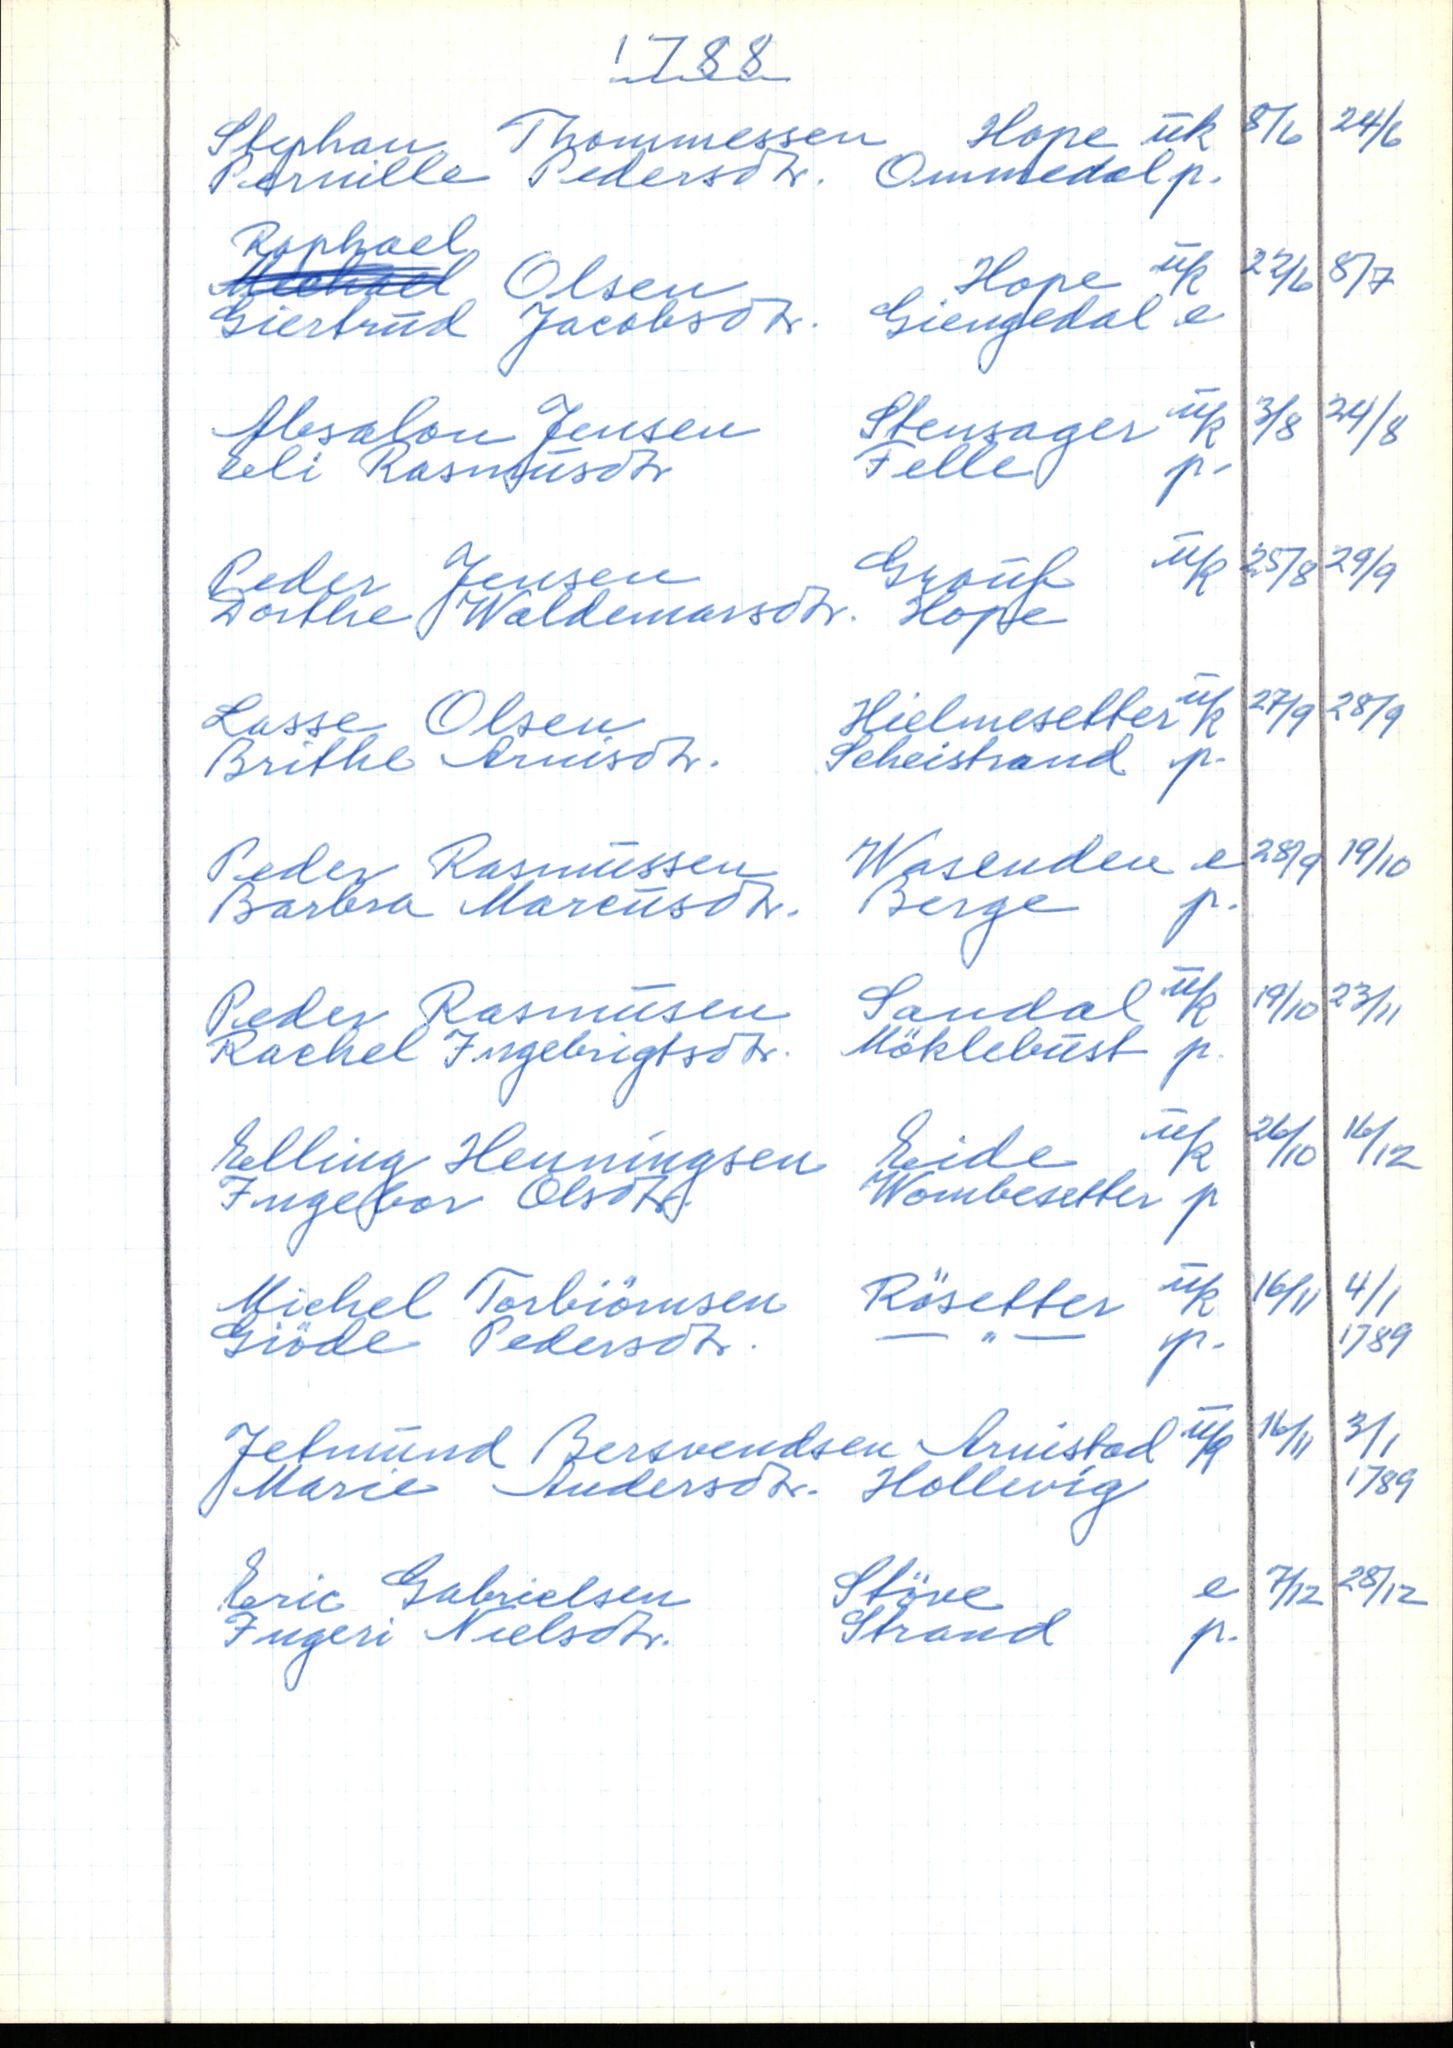 1788
Stephan Thommessen Hope uk 8/6 24/6
Pernille Pedersdtr. Ommedal p.
Raphael
Michael Olsen Hope uk 22/6 8/7
Giertrud Jacobsdtr. Giengedal e
Absalon Jensen Stensager uk 3/8 24/8
Eli Rasmusdtr Felle p.
Peder Jensen uk 25/8 29/9
Dorthe Waldemarsdtr. Hope
Lasse Olsen Hielmesetter uk 27/9 28/9
Brithe Arnisdtr. Scheistrand p.
Peder Rasmussen Wasenden e 28/9 19/10
Barbra Marcusdtr. Berge p.
Peder Rasmusen Sandal uk 19/10 23/11
Rachel Ingebrigtsdtr. Möklebust p.
Elling Henningsen Eide uk 26/10 16/12
Ingebor Olsdtr. Wombesetter p
Michel Torbiörnsen Rösetter uk 16/11 4/1
Giöde Pedersdtr. — " — p. 1789
Jetmund Bersvendsen Arnistad uk 16/11 3/1
Marie Andersdtr. Hollevig 1789
Eric Gabrielsen Stöve e 7/12 28/12
Ingeri Nielsdtr. Strand p.